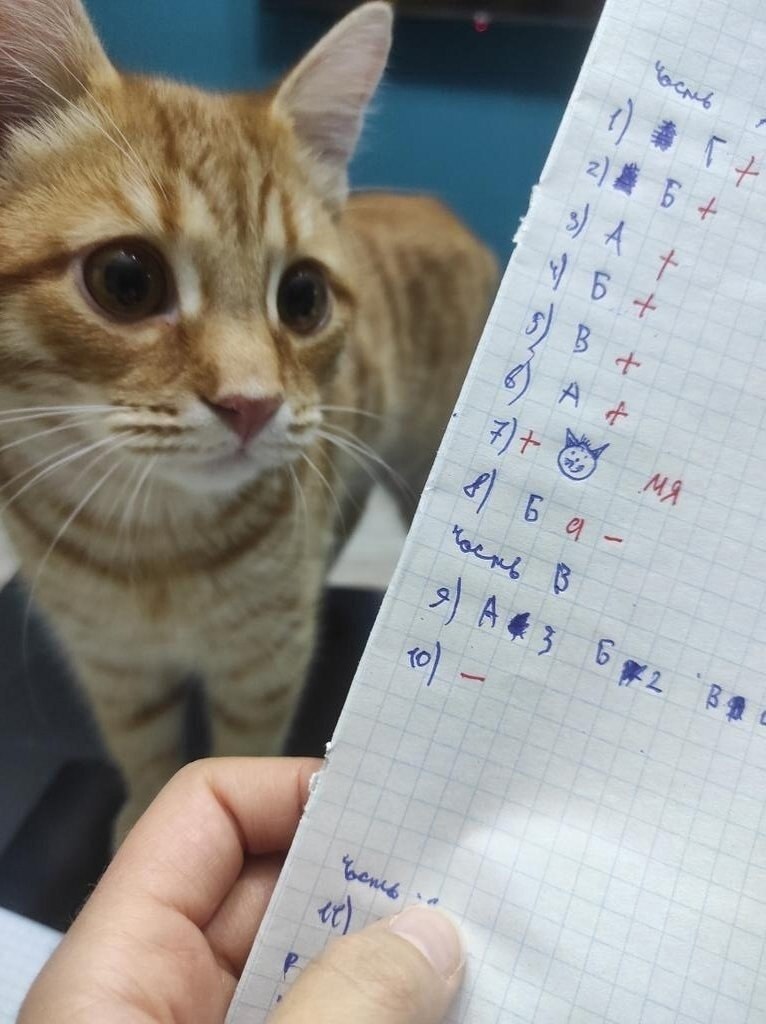 Часть
1) Г +
2) Б +
3) А +
4) Б +
5) В +
6) А +
7) + МЯ
8) Б а –
Часть В
9) А 3 Б 2 В
10) –
Часть
11)